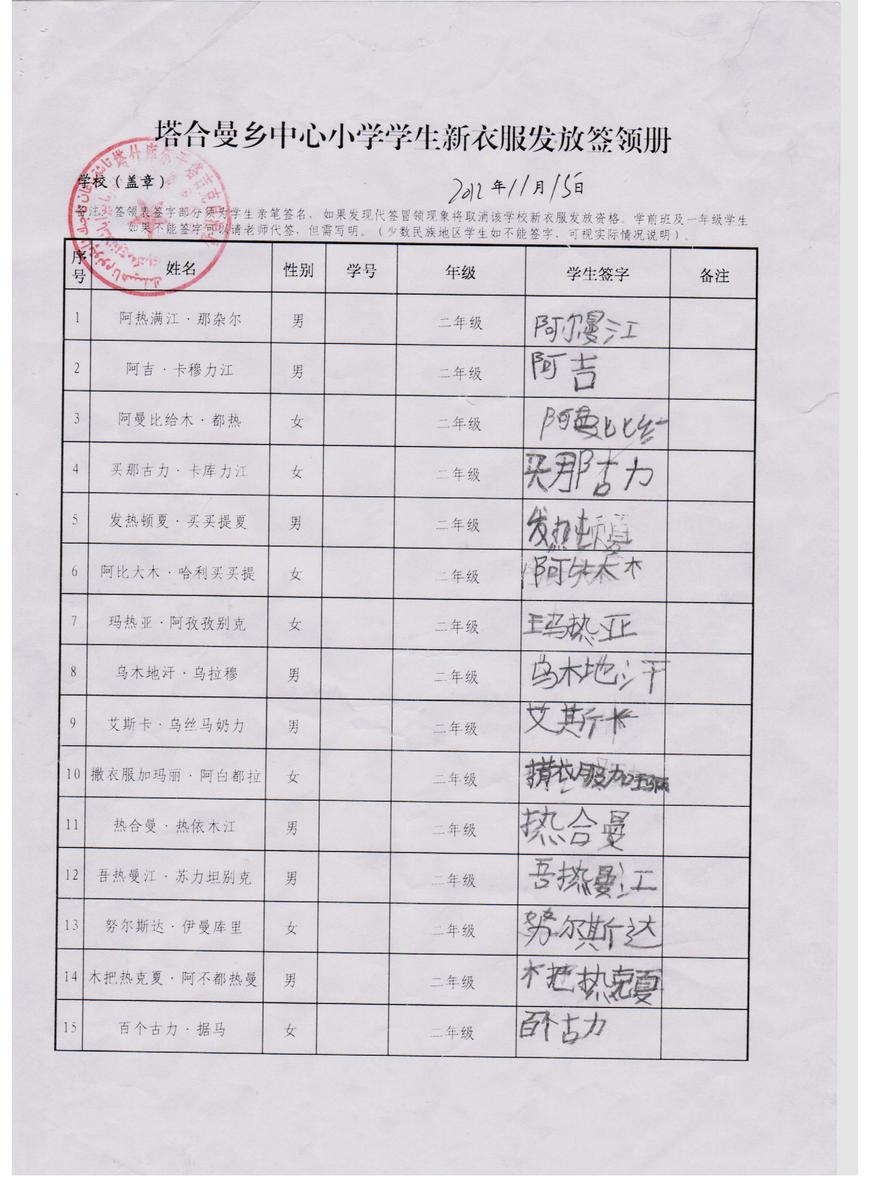 塔合曼乡中心小学学生新衣服发放签领册
学校（盖章） 2012年11月15日
备注：签领表签字部分须为学生亲笔签名，如果发现代签冒领现象将取消该学校新衣服发放资格。学前班及一年级学生
如果不能签字可以请老师代签，但需写明。（少数民族地区学生如不能签字，可视实际情况说明）。
序号 姓名 性别 学号 年级 学生签字 备注
1 阿热满江·那杂尔 男 二年级 阿尔曼江
2 阿吉·卡穆力江 男 二年级 阿吉
3 阿曼比给木·都热 女 二年级 阿曼比
4 买那古力·卡库力江 女 二年级 买那古力
5 发热顿夏·买买提夏 男 二年级 发热顿夏
6 阿比大木·哈利买买提 女 二年级 阿
7 玛热亚·阿孜孜别克 女 二年级 玛热亚
8 乌木地汗·乌拉穆 男 二年级 乌木地汗
9 艾斯卡·乌丝马奶力 男 二年级 艾斯卡
10 撒衣服加玛丽·阿白都拉 女 二年级 衣服加玛丽
11 热合曼·热依木江 男 二年级 热合曼
12 吾热曼江·苏力坦别克 男 二年级 吾热曼江
13 努尔斯达·伊曼库里 女 二年级 努尔斯达
14 木把热克夏·阿不都热曼 男 二年级 木把热克夏
15 百个古力·据马 女 二年级 百个古力